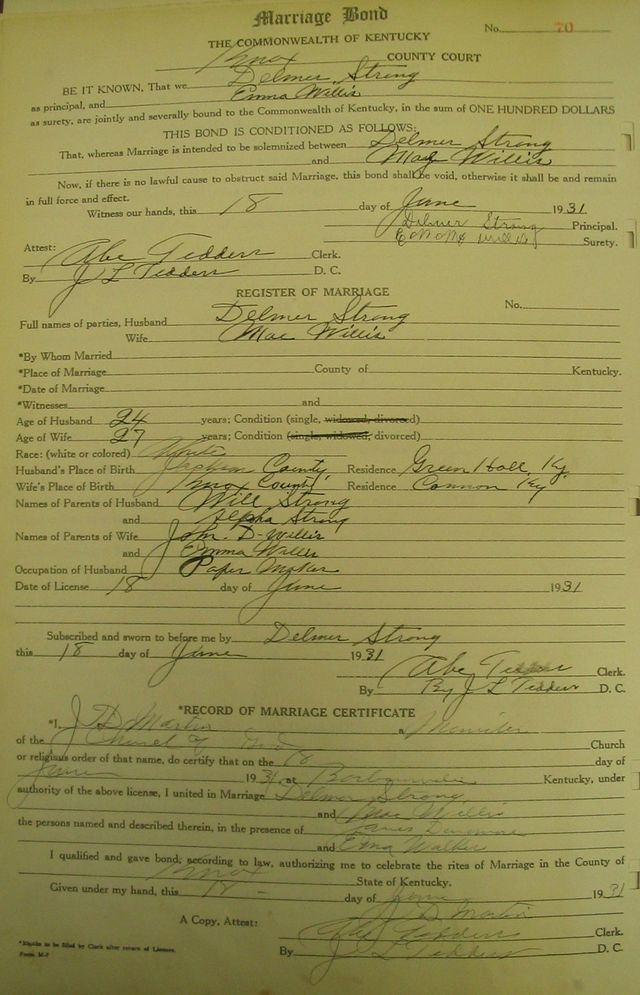 Marriage Bond
No. 70
THE COMMONWEALTH OF KENTUCKY
Knox COUNTY COURT
BE IT KNOWN, That we Delmer Strong
as principal, and Emma Willis
as surety, are jointly and severally bound to the Commonwealth of Kentucky, in the sum of ONE HUNDRED DOLLARS
THIS BOND IS CONDITIONED AS FOLLOWS:
That, whereas Marriage is intended to be solemnized between Delmer Strong
and Mae Willis
Now, if there is no lawful cause to obstruct said Marriage, this bond shall be void, otherwise it shall be and remain
in full force and effect.
Witness our hands, this 18 day of June 1931
Delmer Strong Principal.
Emma Willis Surety.
Attest:
Abe Tedders Clerk.
By J L Tedders D. C.
REGISTER OF MARRIAGE
No.
Full names of parties, Husband Delmer Strong
Wife Mae Willis
*By Whom Married
*Place of Marriage County of Kentucky.
*Date of Marriage
*Witnesses and
Age of Husband 24 years; Condition (single, widowed, divorced)
Age of Wife 27 years; Condition (single, widowed, divorced)
Race: (white or colored) White
Husband's Place of Birth Jackson County Residence Green Hall, Ky.
Wife's Place of Birth Knox County Residence Cannon Ky
Names of Parents of Husband Will Strong
and Alpha Strong
Names of Parents of Wife John D. Willis
and Emma Willis
Occupation of Husband Paper Maker
Date of License 18 day of June 1931
Subscribed and sworn to before me by Delmer Strong
this 18 day of June 1931
Abe Tedders Clerk.
By By J L Tedders D. C.
*RECORD OF MARRIAGE CERTIFICATE
*I, J D Martin a Minister
of the Church of God Church
or religious order of that name, do certify that on the 18 day of
June 1931 at Barbourville Kentucky, under
authority of the above license, I united in Marriage Delmer Strong
and Mae Willis
the persons named and described therein, in the presence of
and Walker
I qualified and gave bond, according to law, authorizing me to celebrate the rites of Marriage in the County of
Knox State of Kentucky.
Given under my hand, this 18 day of June 1931
J D Martin
A Copy, Attest: Abe Tedders Clerk.
By J L Tedders D. C.
*Blanks to be filled by Clerk after return of License.
Form M-7